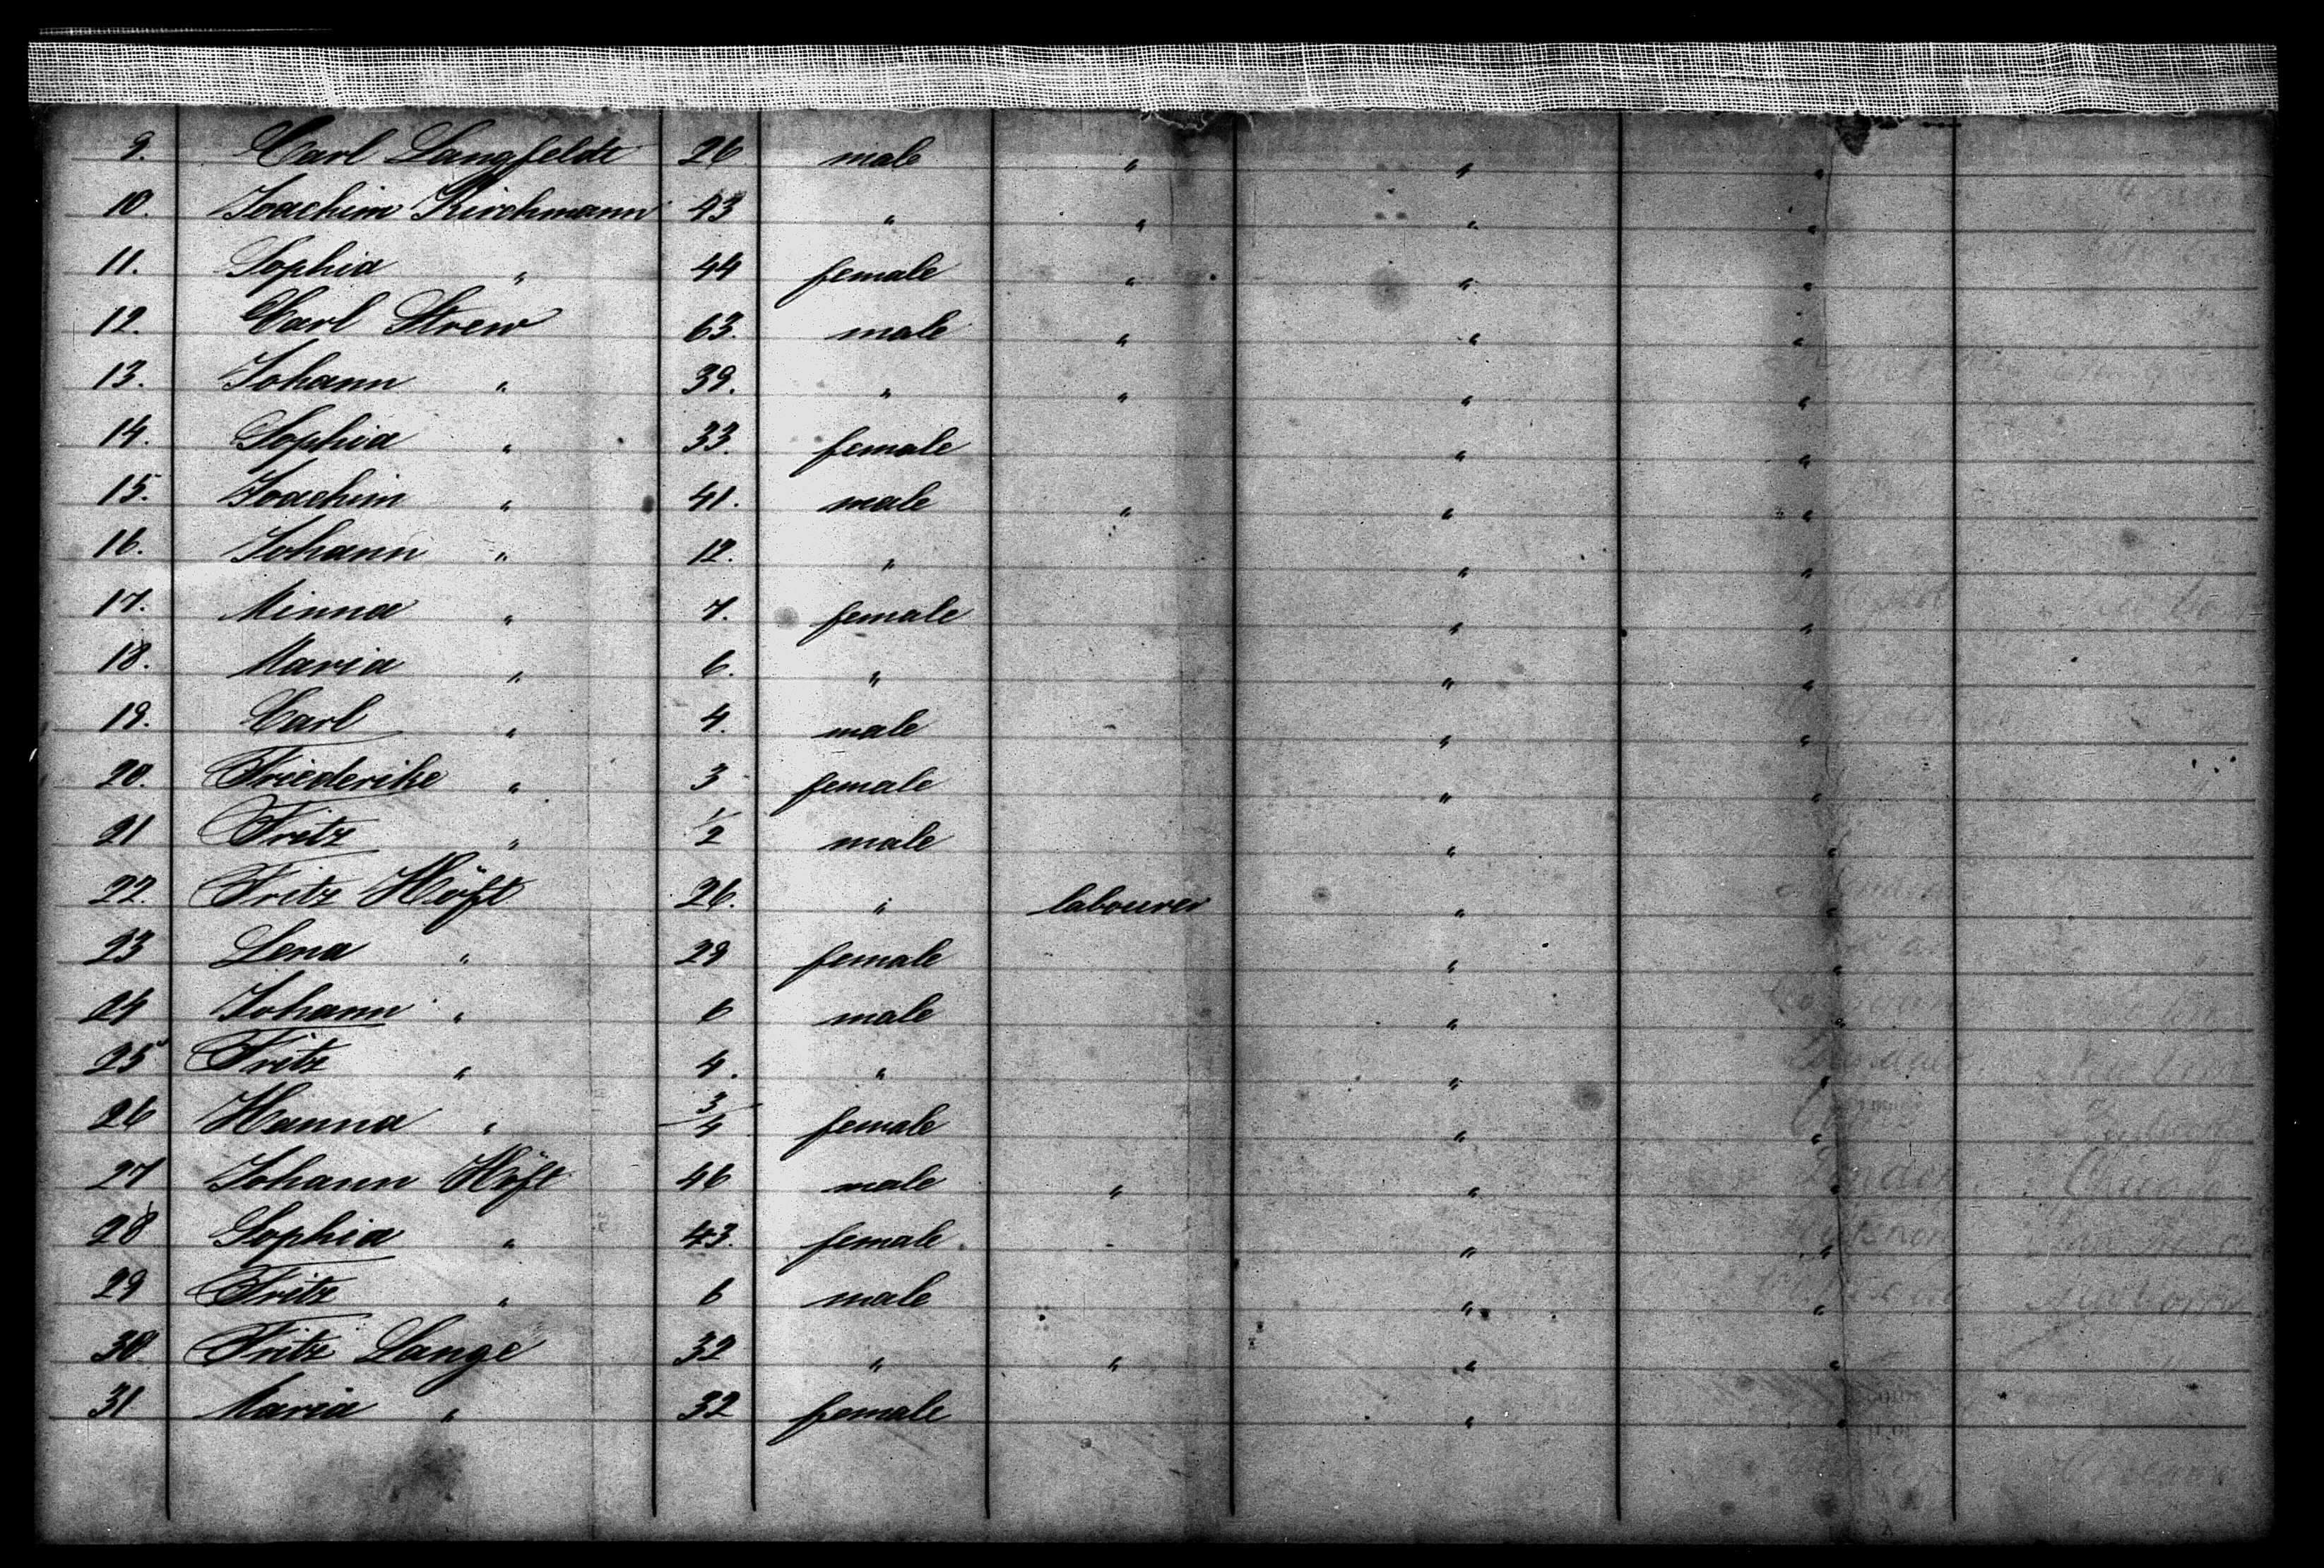 9. Carl Langfeldt 26 male " " "
10. Joachim Kirchmann 43 " " " "
11. Sophia " 44 female " " "
12. Carl Strew 63. male " " "
13. Johann " 39. " " " "
14. Sophia " 33. female " "
15. Joachim " 41. male " " "
16. Johann " 12. " " "
17. Minna " 7. female " "
18. Maria " 6. " " "
19. Carl " 4. male " "
20. Friederike " 3 female " "
21 Fritz " 1/2 male " "
22. Fritz Höft 26. " labourer " "
23 Lena " 29 female " "
24 Johann " 6 male " "
25 Fritz " 4. " " "
26 Hanna " 3/4 female " "
27 Johann Höft 46 male " " "
28 Sophia " 43. female " "
29 Fritz " 6 male " "
30. Fritz Lange 32 " " " "
31 Maria " 32 female " "